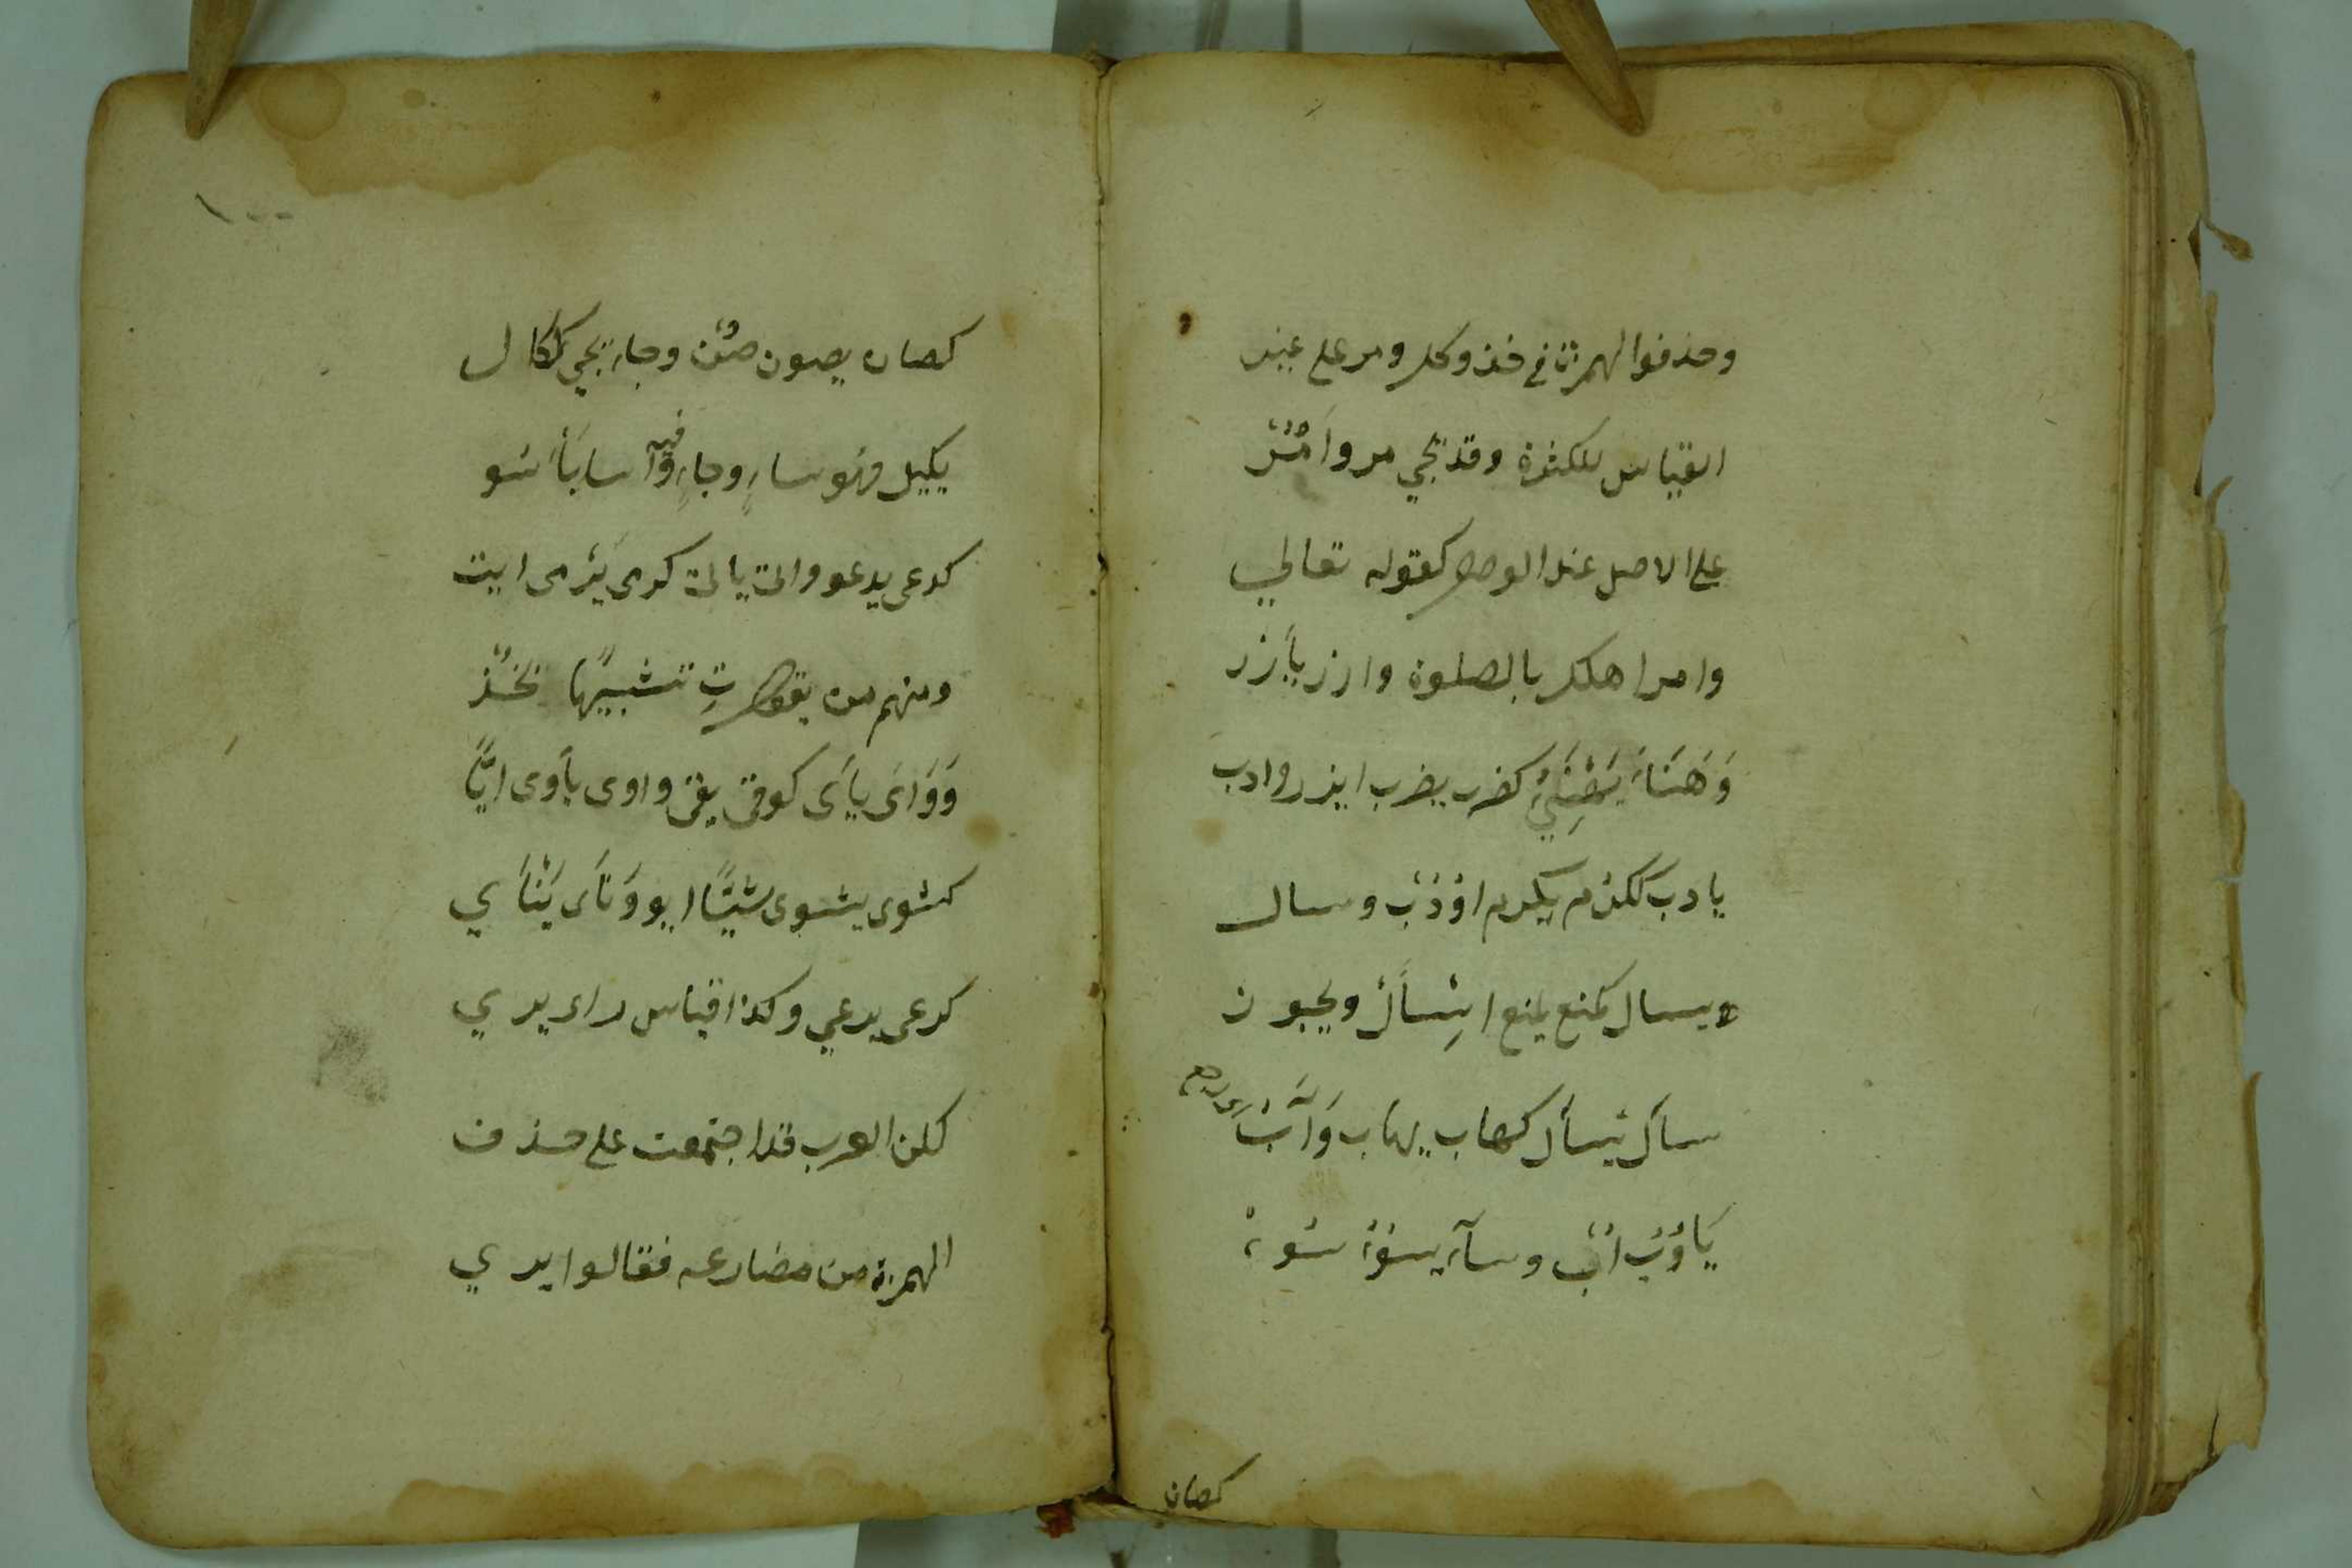 وحذفوا الهمزة في خذ وكل ومر على غير
القياس للكثرة وقد تجي مر وأمُرْ
على الاصل عند الوصل كقوله تعالى
وامر اهلك بالصلوة وازر يأزر
وَهَنَاءَ يَهْنِئُ كضرب يضرب ايزر وادب
يادب ككرم يكرم اؤدُبْ وسال
ويسال كمنع يمنع اِسْأَلْ ويجوز
سال يسال كهاب يهاب وَآبَ
يَاوُبُ اُبْ وساء يسوء سُوءْ
كصان
١٠٠
كصان يصون صُنْ وجاء يجي ككال
يكيل فهو ساءٍ وجاءٍ فيه وآسا يَأسُو
كدعى يدعو واتى ياتى كرمى يَرْمى ايت
ومنهم من يقول تِ تشبيهًا بخُذ
وَوَاَى يأَى كوقى يقى واوى يأوى ايًّا
كشوى يشوى شيًّا ايو وَنَأَى يَنْأَي
كرعى يرعي وكذا قياس راى يرى
لكن العرب قد اجتمعت على حذف
الهمزة من مضارعه فقالوا يرى